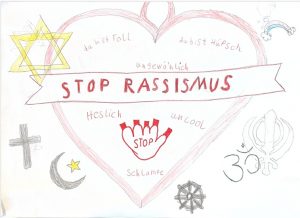 du bist Toll
du bist Hüpsch
ungewöhlich
STOP RASSISMUS
Häslich
unCOOL
STOP
Schlampe